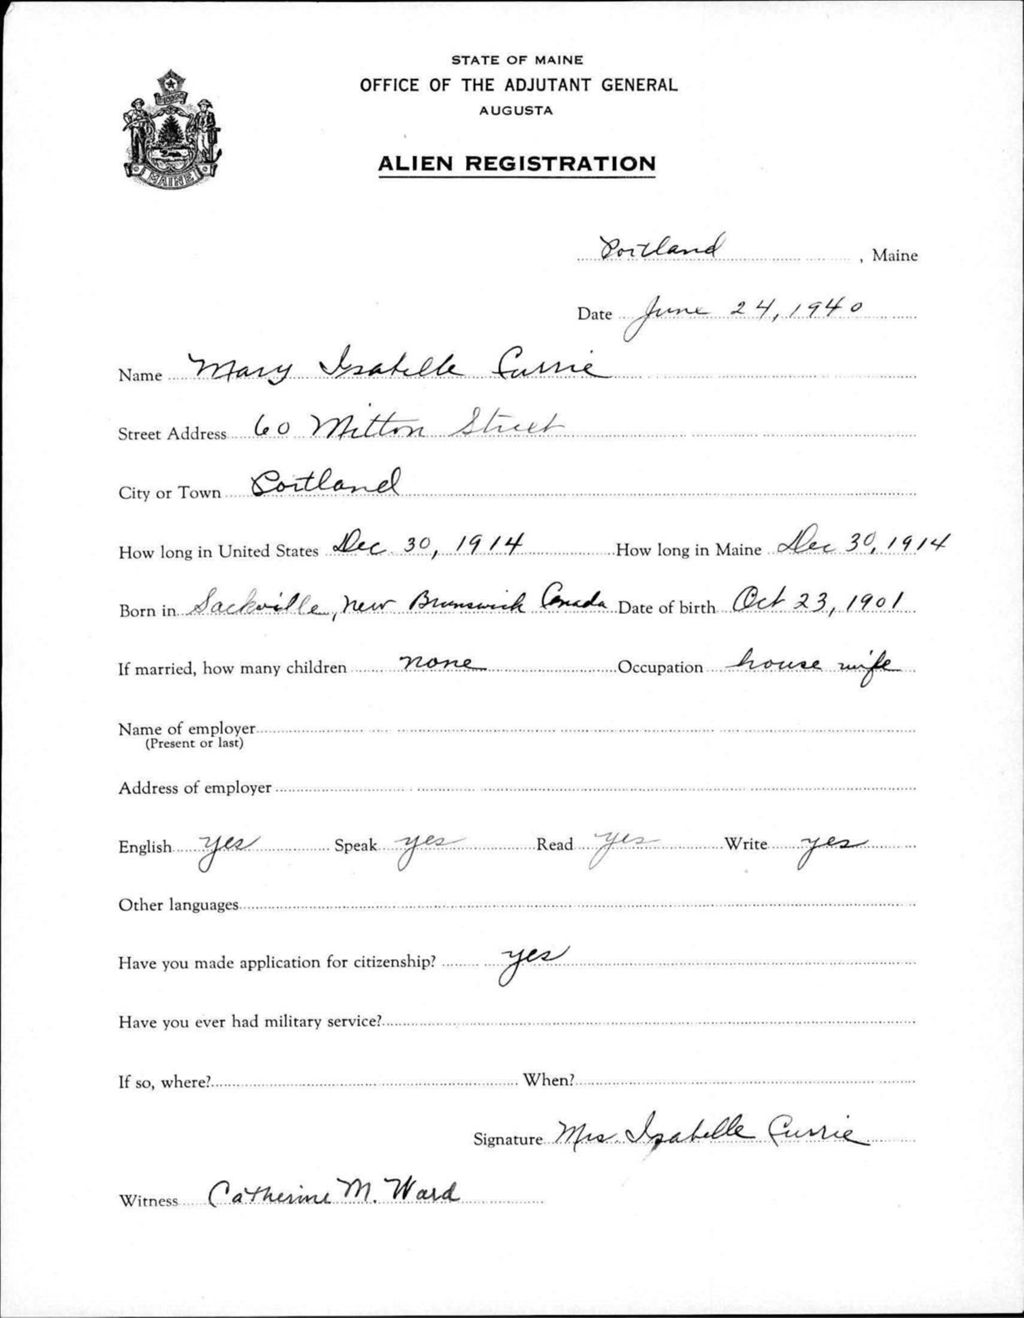 STATE OF MAINE
OFFICE OF THE ADJUTANT GENERAL
AUGUSTA
ALIEN REGISTRATION
MAINE
Portland, Maine
Date June 24, 1940
Name Mary Isabelle Currie
Street Address 60 Mitton Street
City or Town Portland
How long in United States Dec 30, 1914 How long in Maine Dec 30, 1914
Born in Sackville, New Brunswick Canada Date of birth Oct 23, 1901
If married, how many children none Occupation house wife
Name of employer
(Present or last)
Address of employer
English yes Speak yes Read yes Write yes
Other languages
Have you made application for citizenship? yes
Have you ever had military service?
If so, where? When?
Signature Mrs. Isabelle Currie
Witness Catherine M. Ward